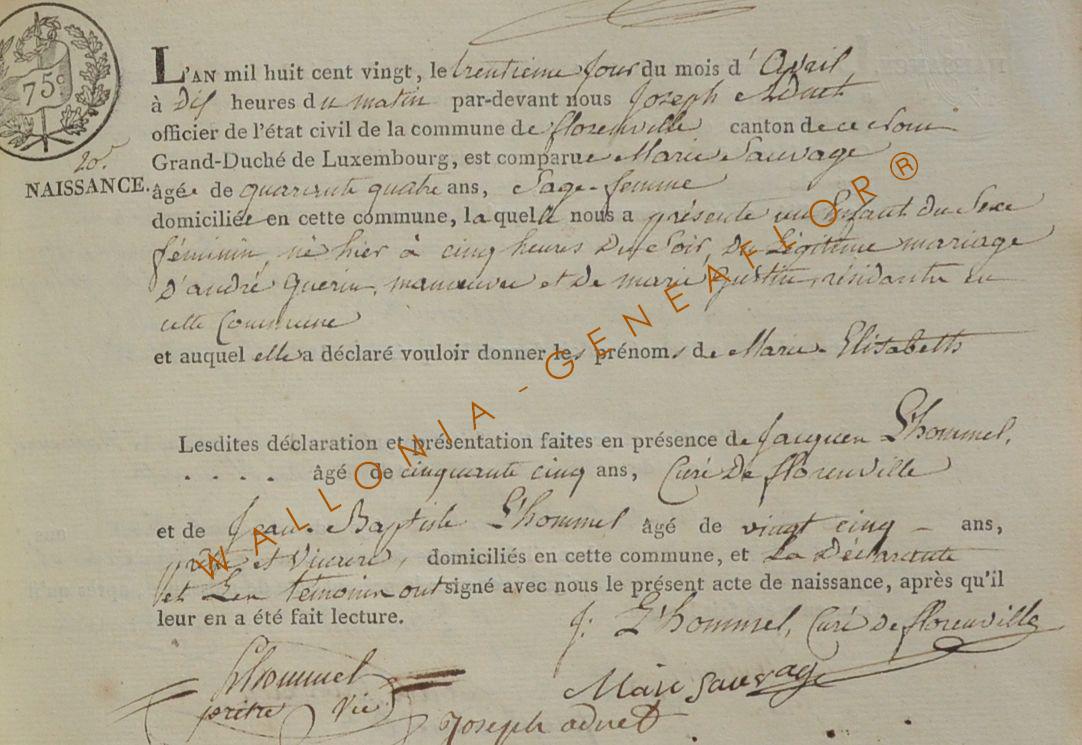 75 c
L'AN mil huit cent vingt, le trentieme jour du mois d'Avril,
à dix heures du matin par-devant nous Joseph Adnet
officier de l'état civil de la commune de florenville canton de ce Nom
Grand-Duché de Luxembourg, est comparue Marie Sauvage
NAISSANCE. âgée de quarante quatre ans, Sage-femme
domiciliée en cette commune, laquelle nous a présenté un Enfant du Sexe
féminin, né hier à cinq heures du Soir, du Légitime mariage
D'andré Guerin, manœuvre et de marie résidante en
cette Commune
et auquel elle a déclaré vouloir donner les prénoms de Marie-Elisabeth
Lesdites déclaration et présentation faites en présence de Jacques L'hommel,
. . . . âgé de cinquante cinq ans, Curé De florenville
et de Jean-Baptiste L'hommel âgé de vingt cinq – ans,
et Vicaire, domiciliés en cette commune, et La Déclarante
et Les témoins ont signé avec nous le présent acte de naissance, après qu'il
leur en a été fait lecture.
J: L'hommel, Curé De florenville
Lhommel
prêtre Vic
Marie Sauvage
Joseph adnet
WALLONIA-GENEAFLOR®